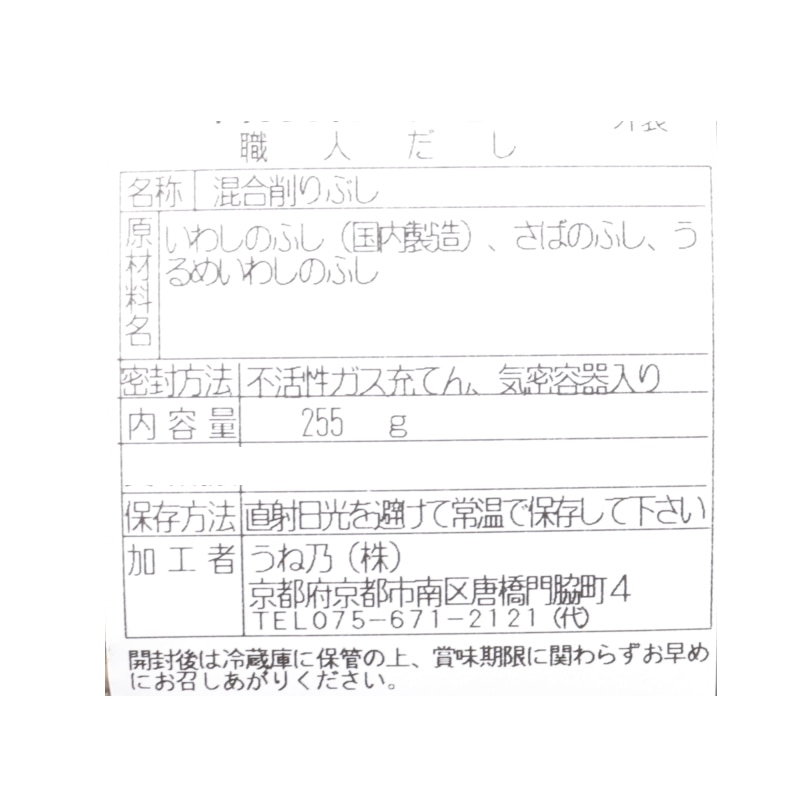 職人だし
名称 混合削りぶし
原材料名 いわしのふし（国内製造）、さばのふし、う
るめいわしのふし
密封方法 不活性ガス充てん、気密容器入り
内容量 255 g
保存方法 直射日光を避けて常温で保存して下さい
加工者 うね乃（株）
京都府京都市南区唐橋門脇町4
TEL075-671-2121（代）
開封後は冷蔵庫に保管の上、賞味期限に関わらずお早め
にお召しあがりください。